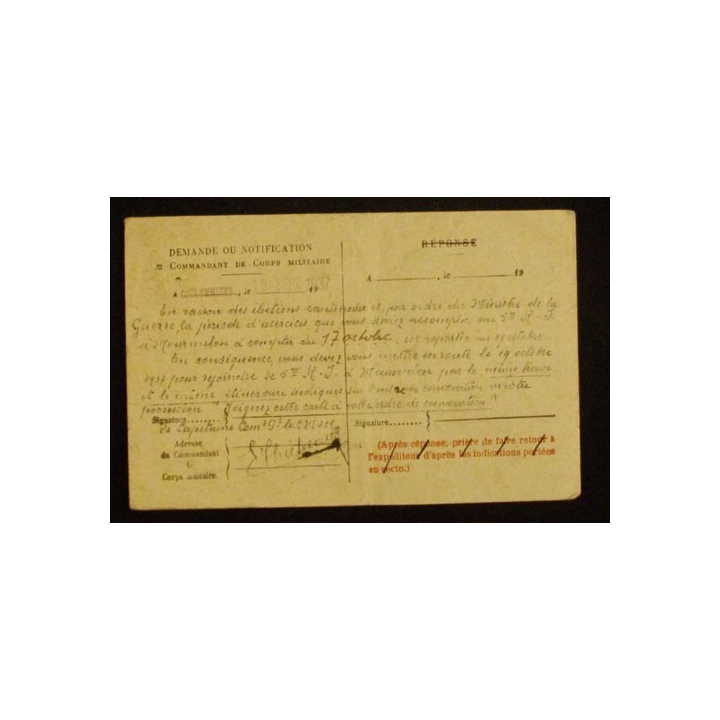 DEMANDE OU NOTIFICATION
RÉPONSE
COMMANDANT DE CORPS MILITAIRE
A , le 19
A , le 19
En raison des élections cantonales et, par ordre du Ministre de la
Guerre, la période d'exercices que vous deviez accomplir au 5e R. I.
à Mourmelon à compter du 17 octobre, est reportée au octobre.
En conséquence, vous devez vous mettre en route le 19 octobre
pour rejoindre le 5e R. I. à Mourmelon par le même train
et le même itinéraire indiqués sur l'ordre de convocation en votre
possession. Joignez cette carte à votre ordre de convocation"
Signature
Signature
Le Capitaine
Adresse
du Commandant
Corps militaire.
(Après réponse, prière de faire retour à
l'expéditeur d'après les indications portées
au recto.)